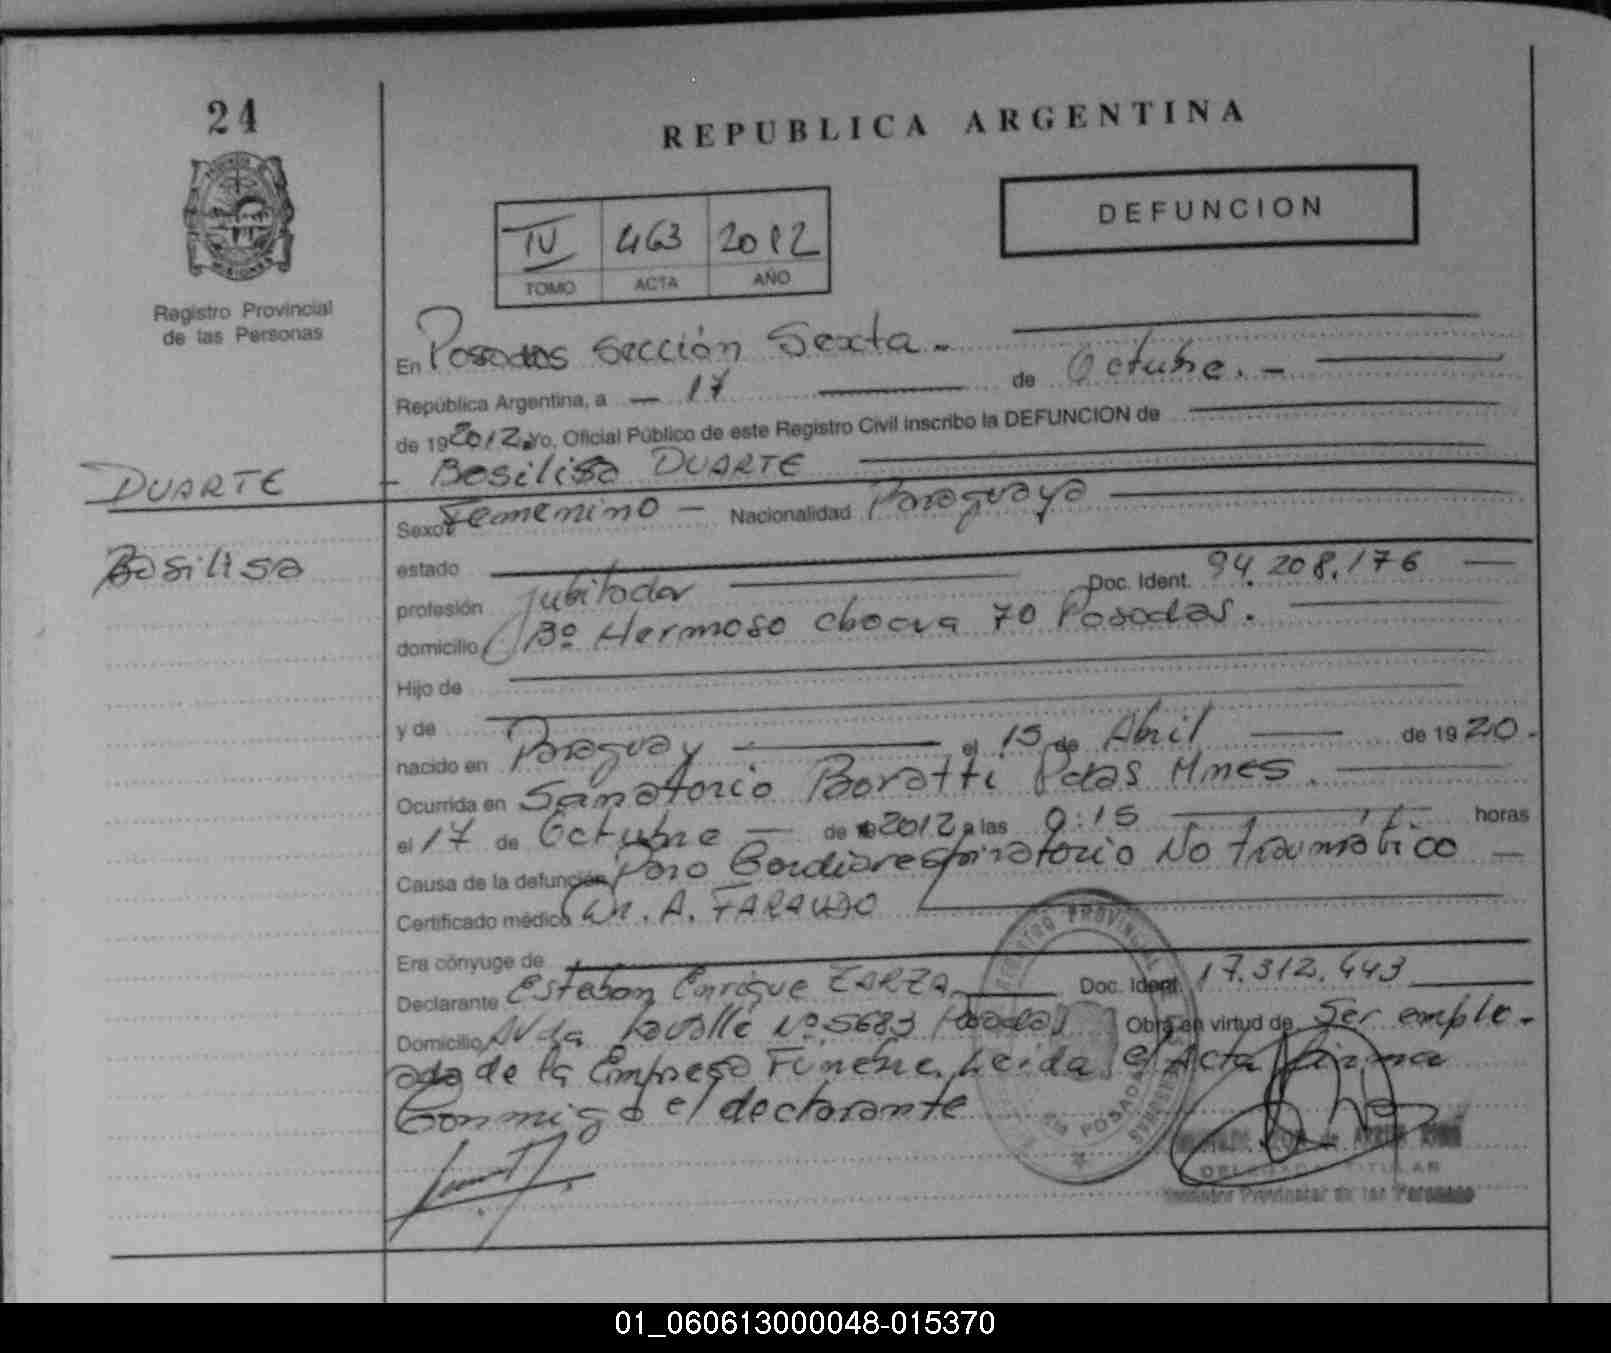 24
REPUBLICA ARGENTINA
DEFUNCION
IV 463 2012
TOMO ACTA AÑO
Registro Provincial
de las Personas
En Posadas Sección Sexta.-
República Argentina, a - 17 de Octubre.-
de 19 2012. Yo, Oficial Público de este Registro Civil inscribo la DEFUNCION de
DUARTE
Basilisa
- Basilisa DUARTE
Sexo Femenino - Nacionalidad Paraguaya
estado
profesión Jubilada Doc. Ident. 94.208.176
domicilio Bº Hermoso chacra 70 Posadas.
Hijo de
y de
nacido en Paraguay el 15 de Abril de 1920.
Ocurrida en Sanatorio Boratti Pdas Mnes.
el 17 de Octubre de 2012 a las 9:15 horas
Causa de la defunción Paro Cardiorespiratorio No traumático
Certificado médico Dr. A. FARAUDO
Era cónyuge de
Declarante Esteban Enrique ZARZA Doc. Ident. 17.312.443
Domicilio Avda Lavalle Nº 5683 Posadas Obra en virtud de Ser emple-
ado de la Empresa Fúnebre. Leida el Acta firma
Conmigo el declarante
REGISTRO PROVINCIAL
POSADAS
MISIONES
DELEGADA TITULAR
Registro Provincial de las Personas
01_060613000048-015370